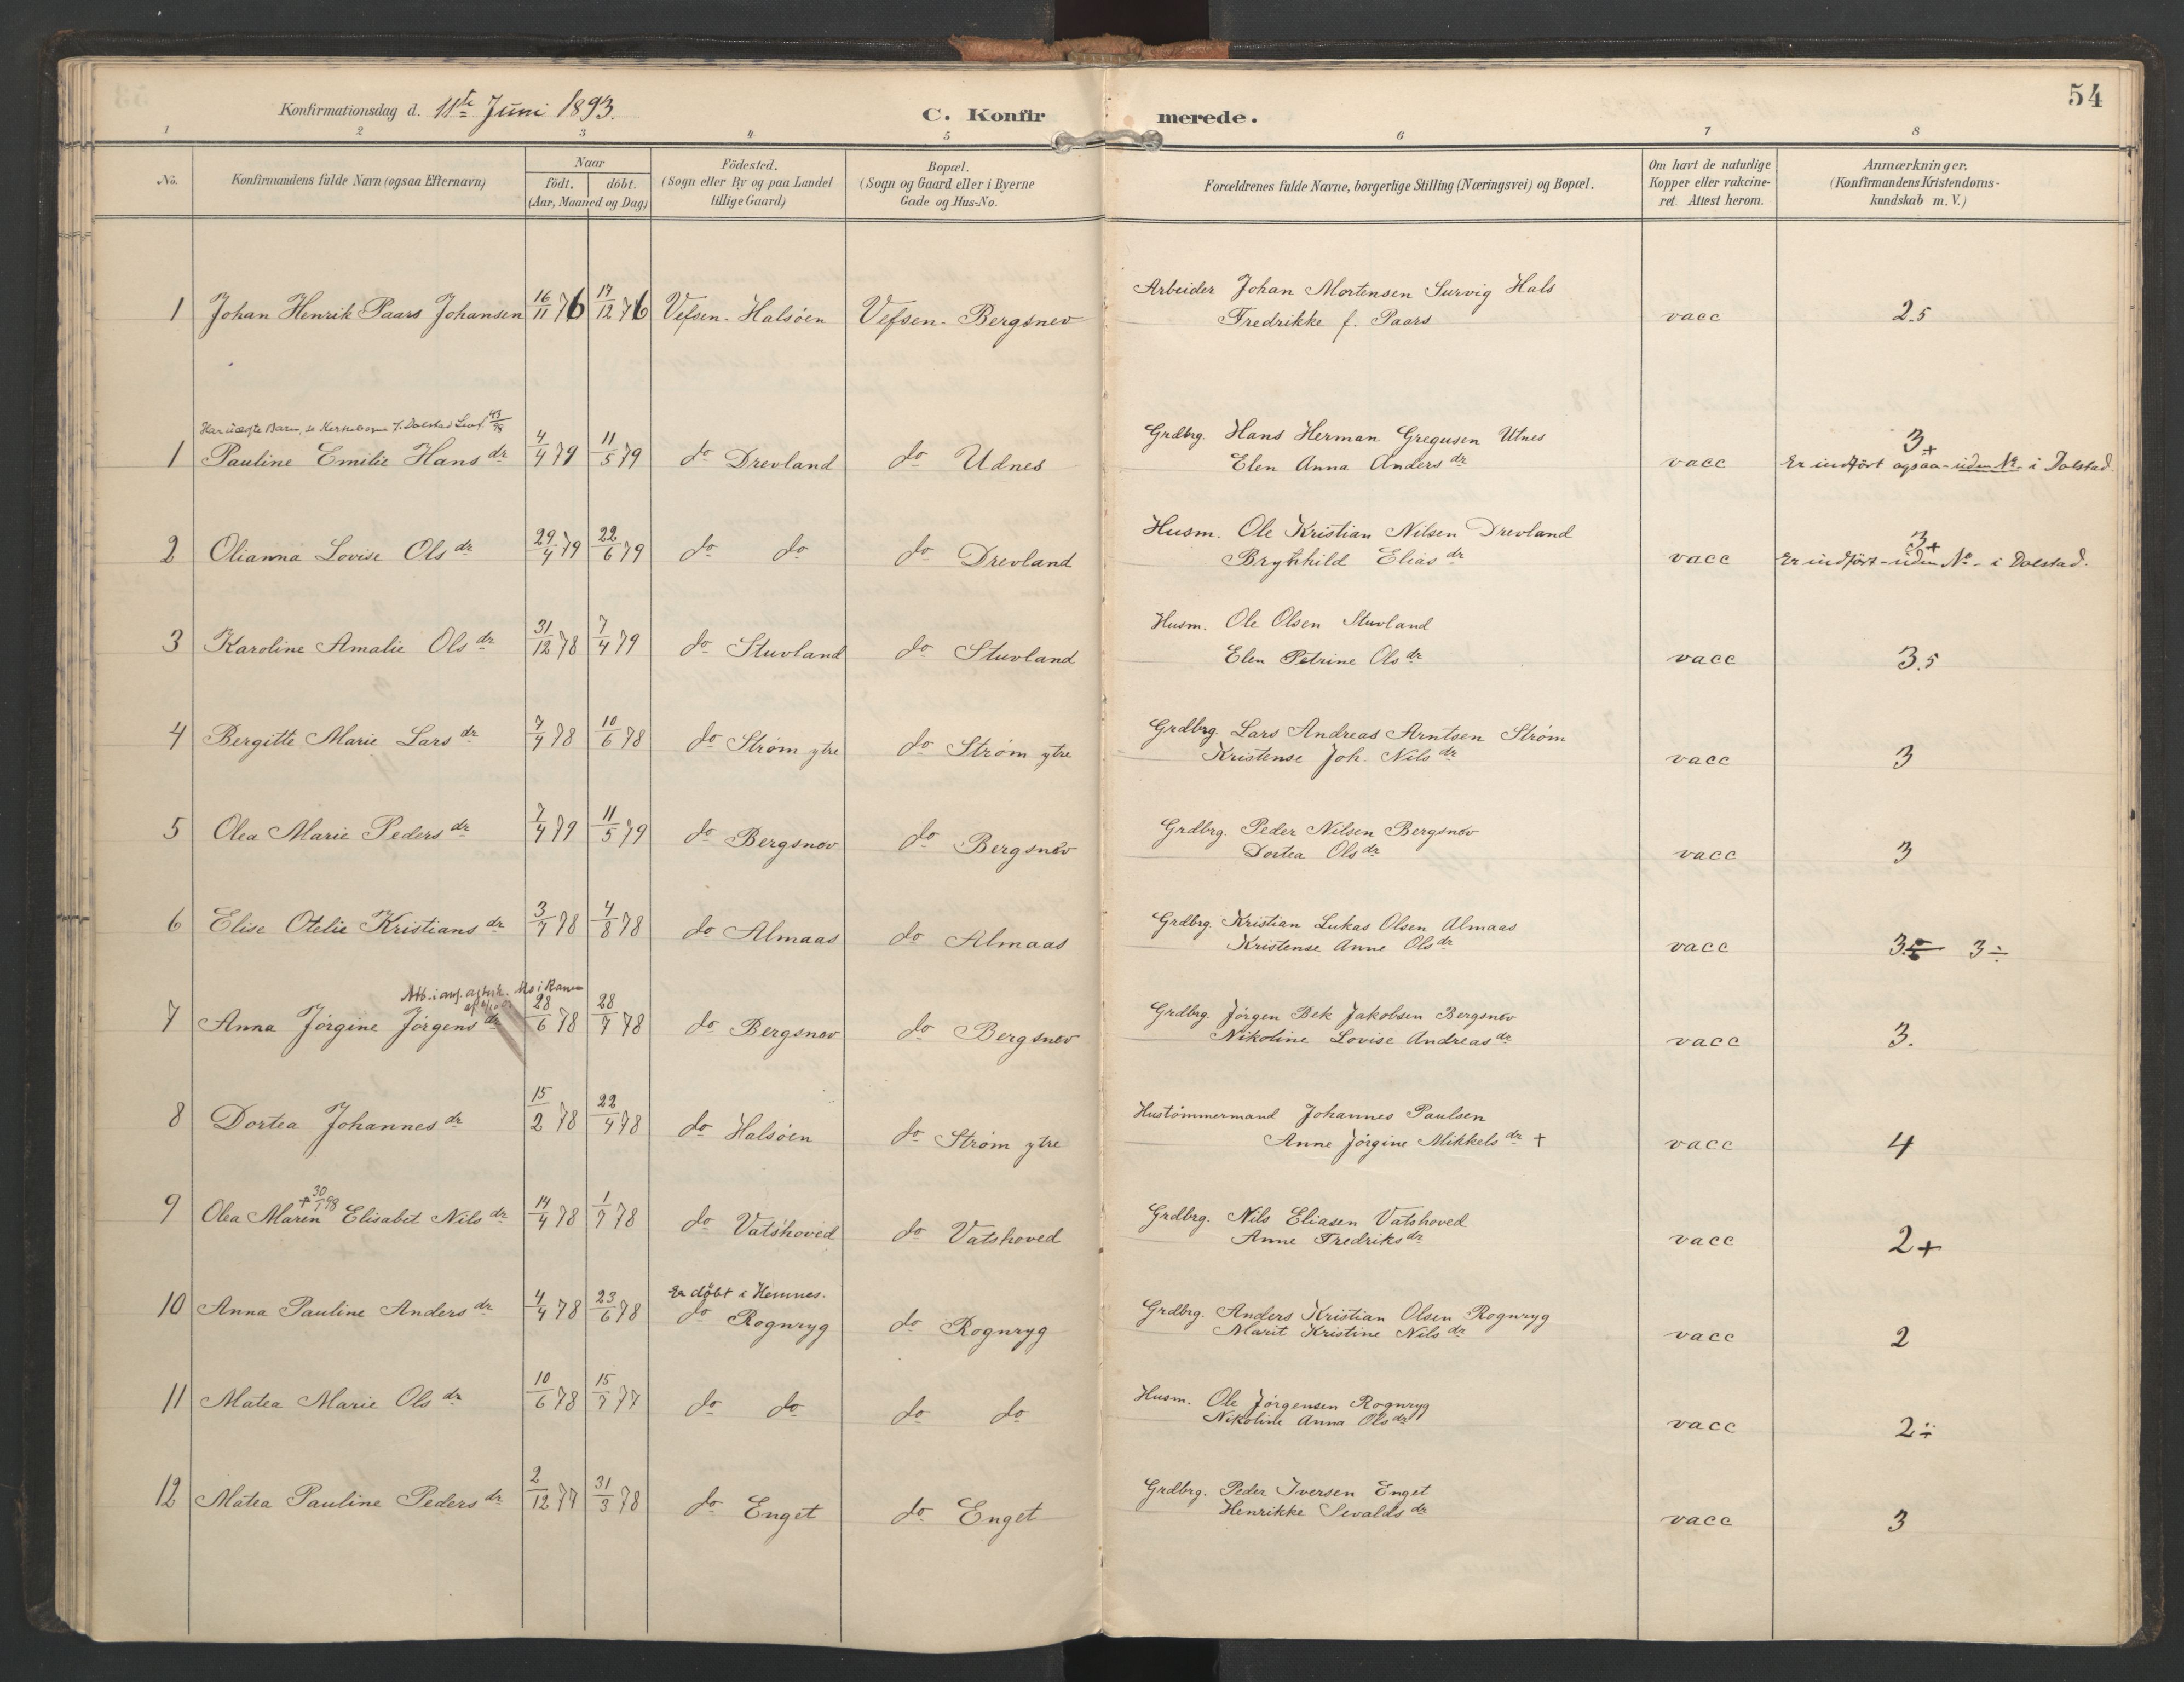 54
Konfirmationsdag d. 11te Juni 1893.
C. Konfirmerede.
1 2 3 4 5 6 7 8
No.
Konfirmandens fulde Navn (ogsaa Efternavn)
Naar
födt. döbt.
(Aar, Maaned og Dag)
Födested.
(Sogn eller By og paa Landet
tillige Gaard)
Bopæl.
(Sogn og Gaard eller i Byerne
Gade og Hus-No.
Forældrenes fulde Navne, borgerlige Stilling (Næringsvei) og Bopæl.
Om havt de naturlige
Kopper eller vakcine-
ret. Attest herom.
Anmærkninger.
(Konfirmandens Kristendoms-
kundskab m. V.)
Arbeider Johan Mortensen Survig Hals
1 Johan Henrik Paars Johansen 16/11 76 17/12 76 Vefsen. Halsöen Vefsen. Bergsnev Fredrikke f. Paars vacc 2.5
Har uægte Barn, se Dolstad 43/98
Grdbrg. Hans Herman Gregusen Utnes 3+
1 Pauline Emilie Hansdr 4/4 79 11/5 79 do Drevland do Udnes Elen Anna Andersdr vacc Er indfört ogsaa - uden No - i Dolstad.
Husm. Ole Kristian Nilsen Drevland 3+
2 Olianna Lovise Olsdr 29/4 79 22/6 79 do do do Drevland Brynhild Eliasdr vacc Er indfört - uden No - i Dolstad.
Husm. Ole Olsen Stuvland
3 Karoline Amalie Olsdr 31/12 78 7/4 79 do Stuvland do Stuvland Elen Petrine Olsdr vacc 3.5
Grdbrg. Lars Andreas Arntsen Ström
4 Bergitte Marie Larsdr 7/4 78 10/6 78 do Ström ytre do Ström ytre Kristense Joh. Nilsdr vacc 3
Grdbrg. Peder Nilsen Bergsnev
5 Olea Marie Pedersdr 7/4 79 11/5 79 do Bergsnev do Bergsnev Dortea Olsdr vacc 3
Grdbrg. Kristian Lukas Olsen Almaas
6 Elise Otelie Kristiansdr 3/7 78 4/8 78 do Almaas do Almaas Kristense Anne Olsdr vacc 3.5 3÷
Grdbrg. Jörgen Bek Jakobsen Bergsnev
7 Anna Jörgine Jörgensdr 28/6 78 28/7 78 do Bergsnev do Bergsnev Nikoline Lovise Andreasdr vacc 3.
Hustömmermand Johannes Paulsen
8 Dortea Johannesdr 15/2 78 22/4 78 do Halsöen do Ström ytre Anne Jörgine Mikkelsdr + vacc 4
+ 30/7 98
Grdbrg. Nils Eliasen Vatshoved
9 Olea Maren Elisabet Nilsdr 14/4 78 1/7 78 do Vatshoved do Vatshoved Anne Fredriksdr vacc 2+
Er döbt i Hemnes.
Grdbrg. Anders Kristian Olsen Rognryg
10 Anna Pauline Andersdr 4/4 78 23/6 78 do Rognryg do Rognryg Marit Kristine Nilsdr vacc 2
Husm. Ole Jörgensen Rognryg
11 Matea Marie Olsdr 10/6 78 15/7 77 do do do do Nikoline Anna Olsdr vacc 2÷
Grdbrg. Peder Iversen Enget
12 Matea Pauline Pedersdr 2/12 77 31/3 78 do Enget do Enget Henrikke Sevaldsdr vacc 3